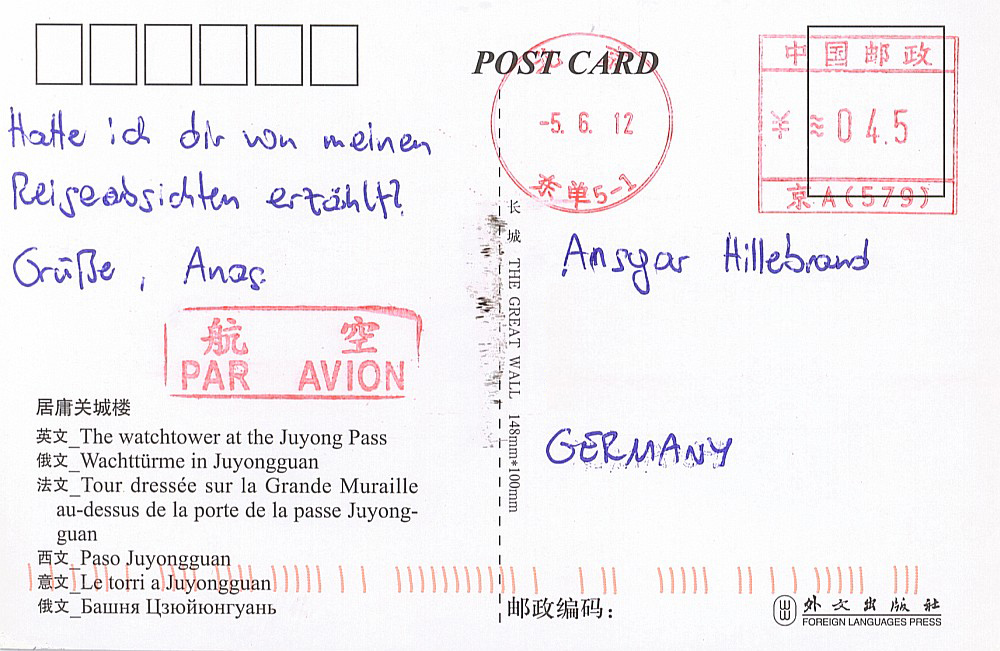 POST CARD
中国邮政
-5. 6. 12
¥ ≈04.5
单5-1
京A(579)
Hatte ich dir von meinen
Reiseabsichten erzählt?
Grüße, Anas.
长城 THE GREAT WALL 148mm*100mm
Ansgar Hillebrand
GERMANY
航 空
PAR AVION
居庸关城楼
英文_The watchtower at the Juyong Pass
俄文_Wachttürme in Juyongguan
法文_Tour dressée sur la Grande Muraille
au-dessus de la porte de la passe Juyong-
guan
西文_Paso Juyongguan
意文_Le torri a Juyongguan
俄文_Башня Цзюйюнгуань
邮政编码：
外文出版社
FOREIGN LANGUAGES PRESS